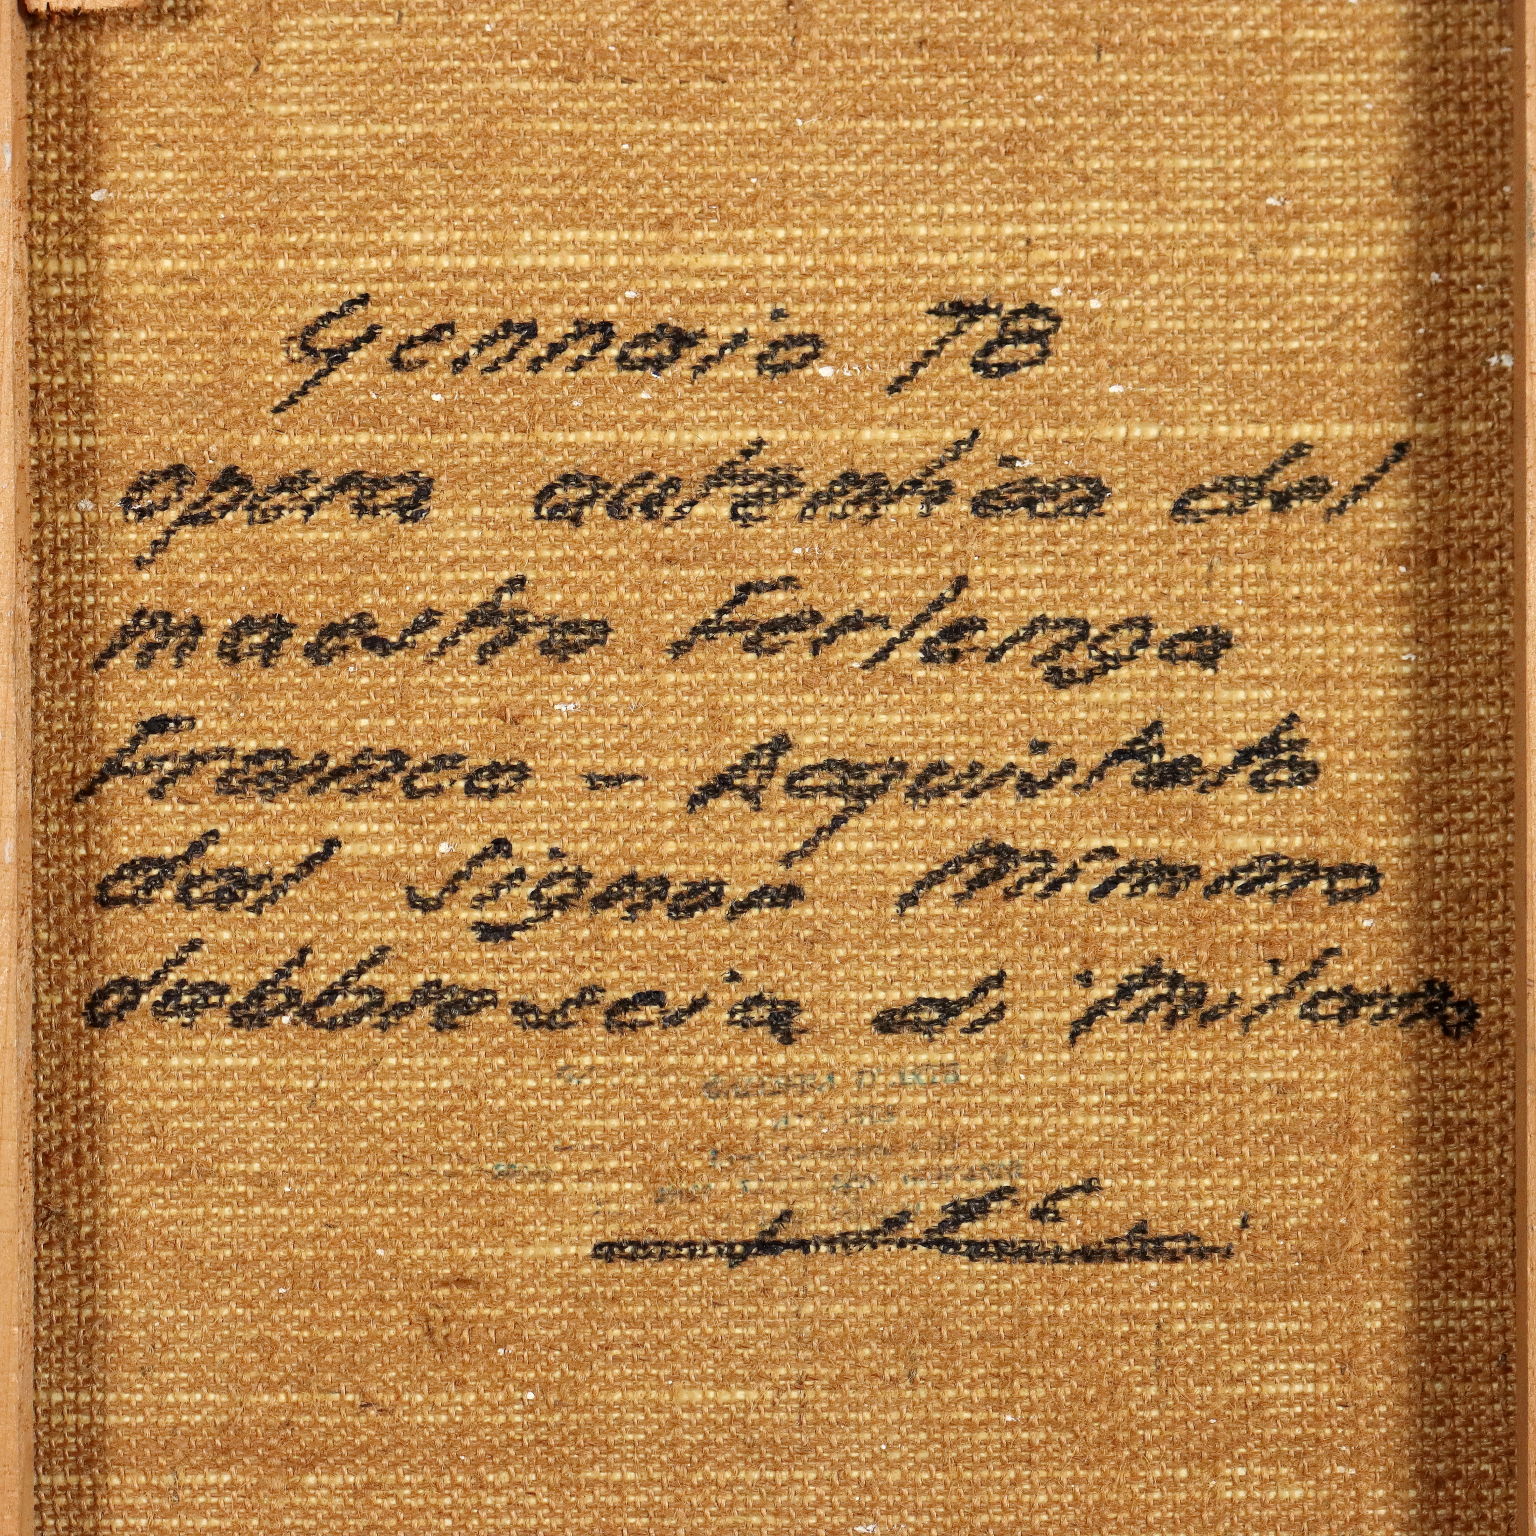 Gennaio 78
opera autentica del
maestro Ferlenga
Franco - Acquistato
dal Signor Mimmo
dabbrescia di Milano
GALLERIA D'ARTE